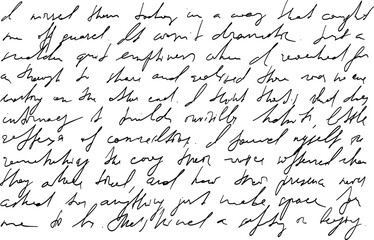 I missed them today in a way that caught
me off guard. It wasn't dramatic. Just a
sudden quiet emptiness when I reached for
a thought to share and realized there was no one
waiting on the other end. I think that's what
intimacy builds habits, little
of connection. I found myself
remembering the way their voice softened when
they were tired, and how their presence never
asked for anything just made space for
me to be. That kind of a